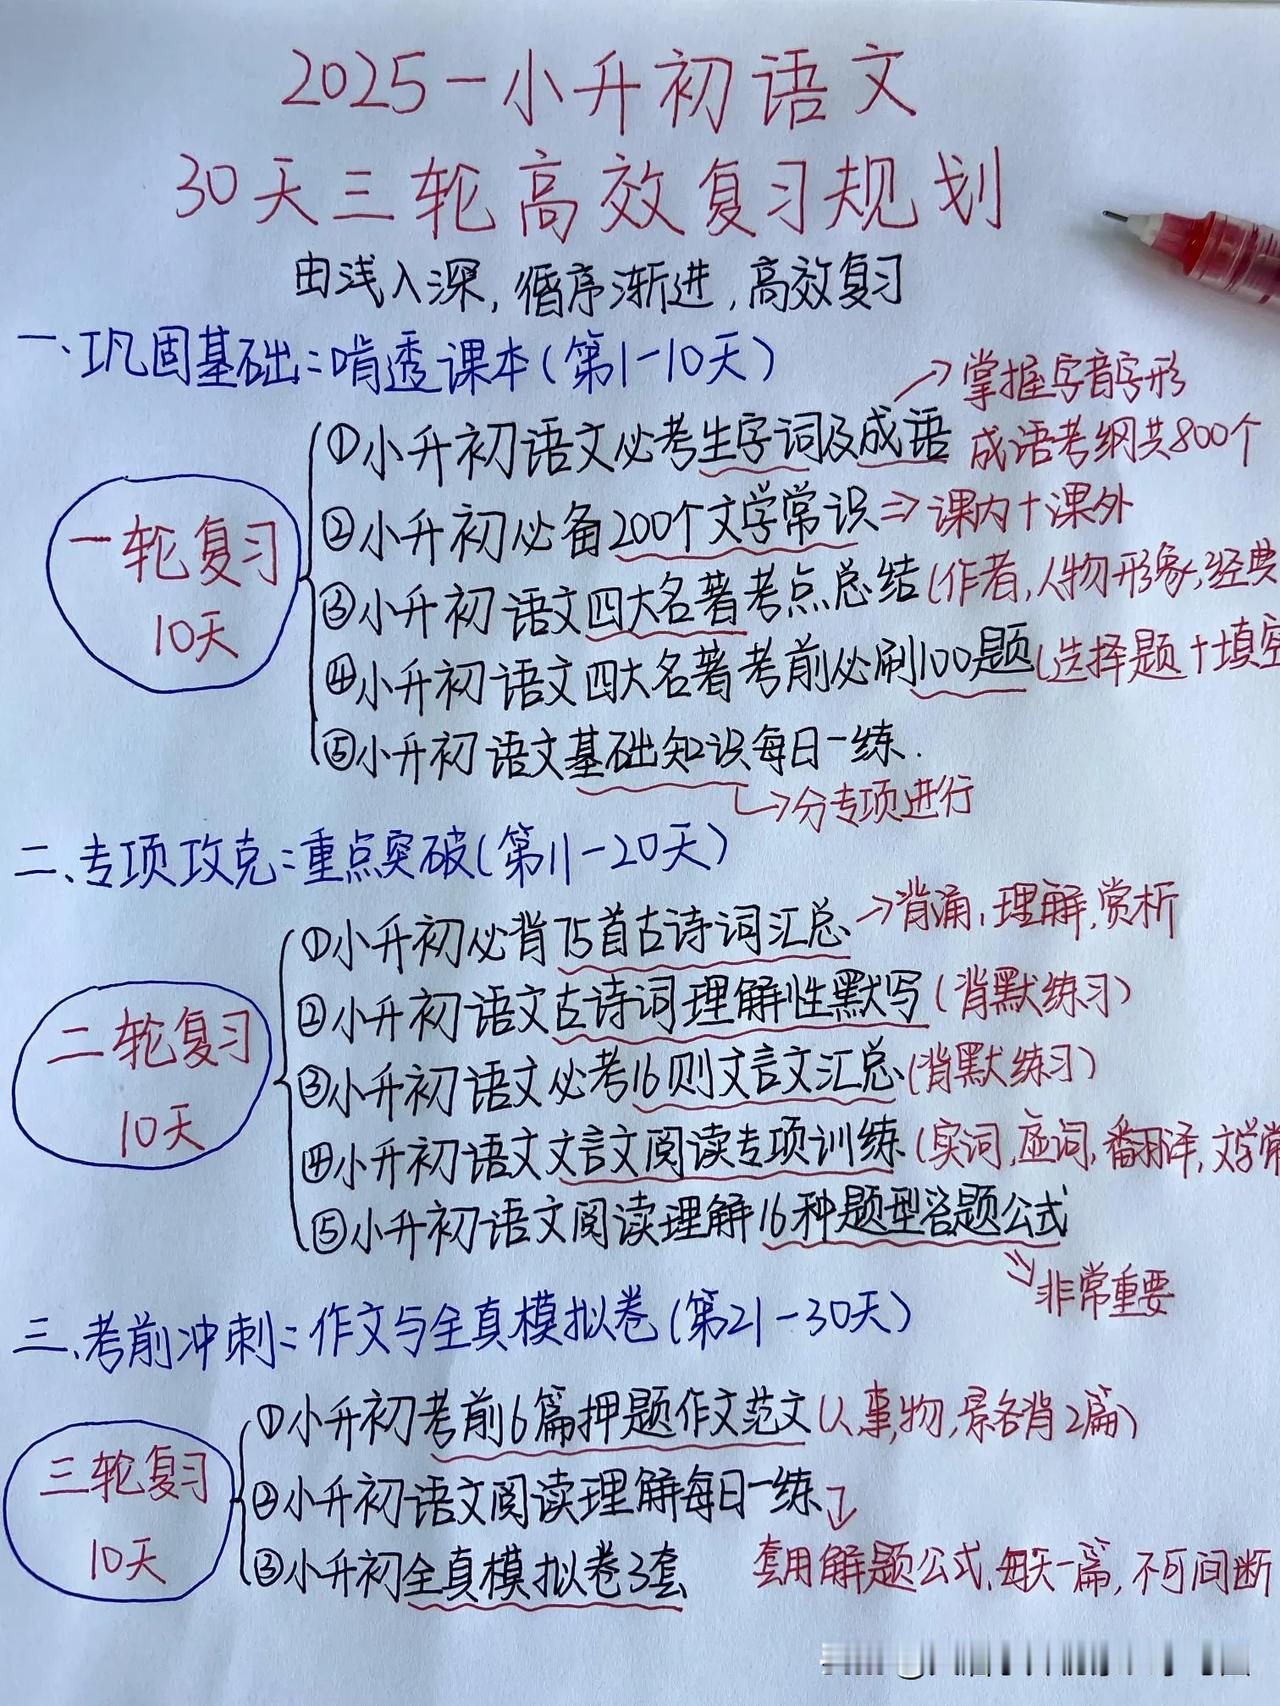 2025-小升初语文
30天三轮高效复习规划
由浅入深,循序渐进,高效复习
一、巩固基础:啃透课本(第1-10天)
一轮复习
10天
①小升初语文必考生字词及成语→掌握字音字形
成语考纲共800个
②小升初必备200个文学常识⇒课内+课外
③小升初语文四大名著考点总结(作者,人物形象,经典
④小升初语文四大名著考前必刷100题(选择题+填空
⑤小升初语文基础知识每日一练.
→分专项进行
二、专项攻克:重点突破(第11-20天)
二轮复习
10天
①小升初必背75首古诗词汇总→背诵,理解,赏析
②小升初语文古诗词理解性默写(背默练习)
③小升初语文必考16则文言文汇总(背默练习)
④小升初语文文言文阅读专项训练(实词,虚词,翻译,文学常
⑤小升初语文阅读理解16种题型答题公式
⇒非常重要
三、考前冲刺:作文与全真模拟卷(第21-30天)
三轮复习
10天
①小升初考前6篇押题作文范文(人,事,物,景各背2篇)
②小升初语文阅读理解每日一练
③小升初全真模拟卷3套
套用解题公式、每天一篇,不可间断